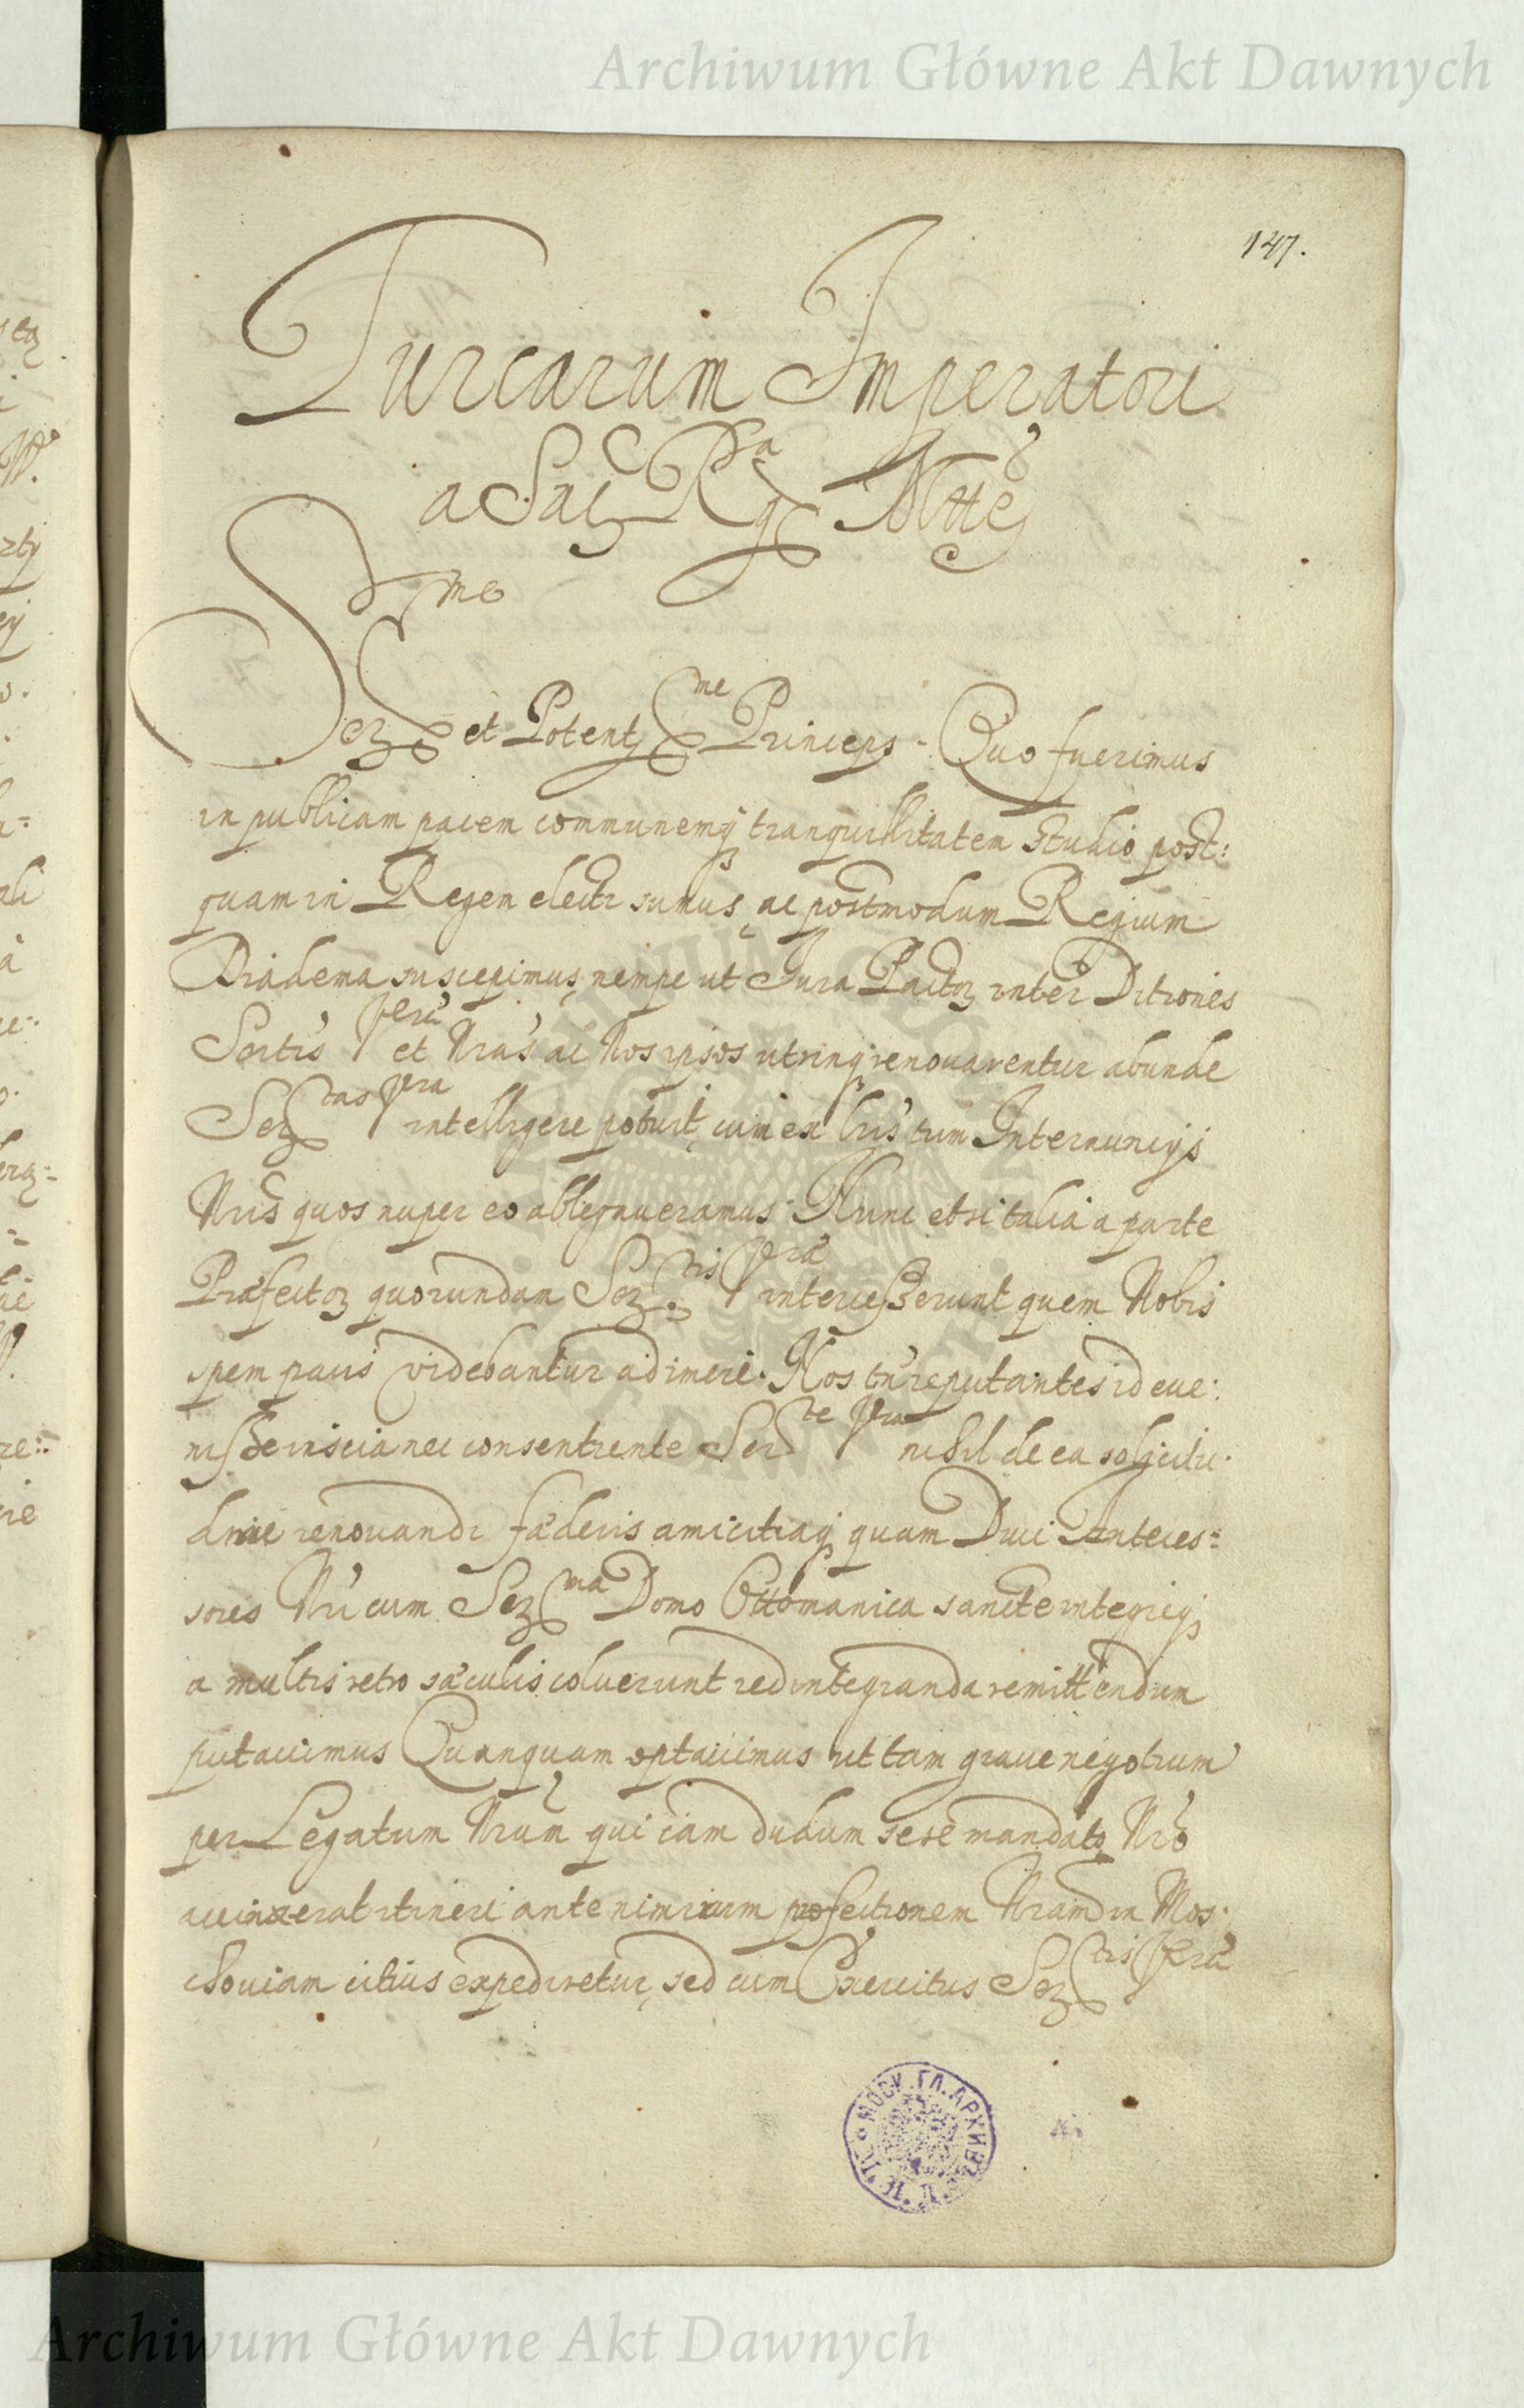 Archiwum Główne Akt Dawnych
147.
Turcarum Imperatori
a Sac Rg^a Mtte
Ser^me et Potent^me Princeps. Quo fuerimus
in publicam pacem communemq tranquillitatem studio post:
quam in Regem electi sumus, ac postmodum Regium
Diadema suscepimus, nempe ut Jura Pactor inter Ditiones
Sertis Vrae et Nras ac Nos ipsos utrinq renovarentur abunde
Ser^tas Vra intelligere potuit, cum ex lris tum Internuncijs
Nris quos nuper eo ablegaveramus. Nunc etsi talia a parte
Praefector quorundam Ser^tis Vrae intercesserunt quem Nobis
spem pacis videbantur adimere. Nos tn reputantes id eve:
nisse inscia nec consentiente Ser^te Vra nihil de ea solicitu:
dine renovandi faederis amicitiaq quam Divi Anteces:
sores Nri cum Ser^ma Domo Ottomanica sancte integreq
a multis retro saeculis coluerunt redintegranda remittendum
putavimus Quanquam optavimus ut tam grave negotium
per Legatum Nrum qui iam dudum sese mandato Nro
accinxerat itineri ante nimirum profectionem Nram in Mos:
choviam citius expediretur, sed cum Exercitus Ser^tis Vrae
МОСК. ГЛ. АРХИВЪ
Archiwum Główne Akt Dawnych